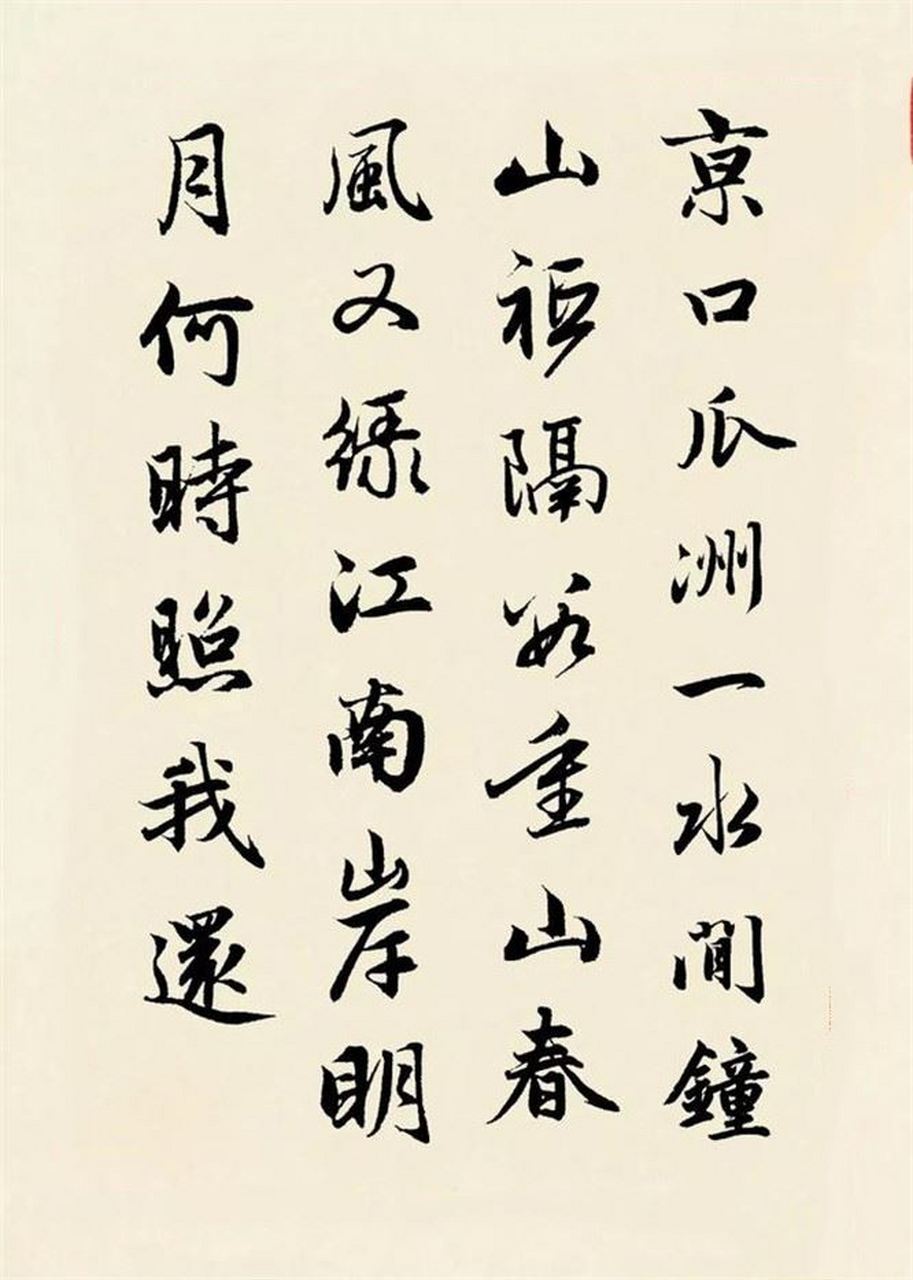 京口瓜洲一水間鐘
山祇隔數重山春
風又綠江南岸明
月何時照我還